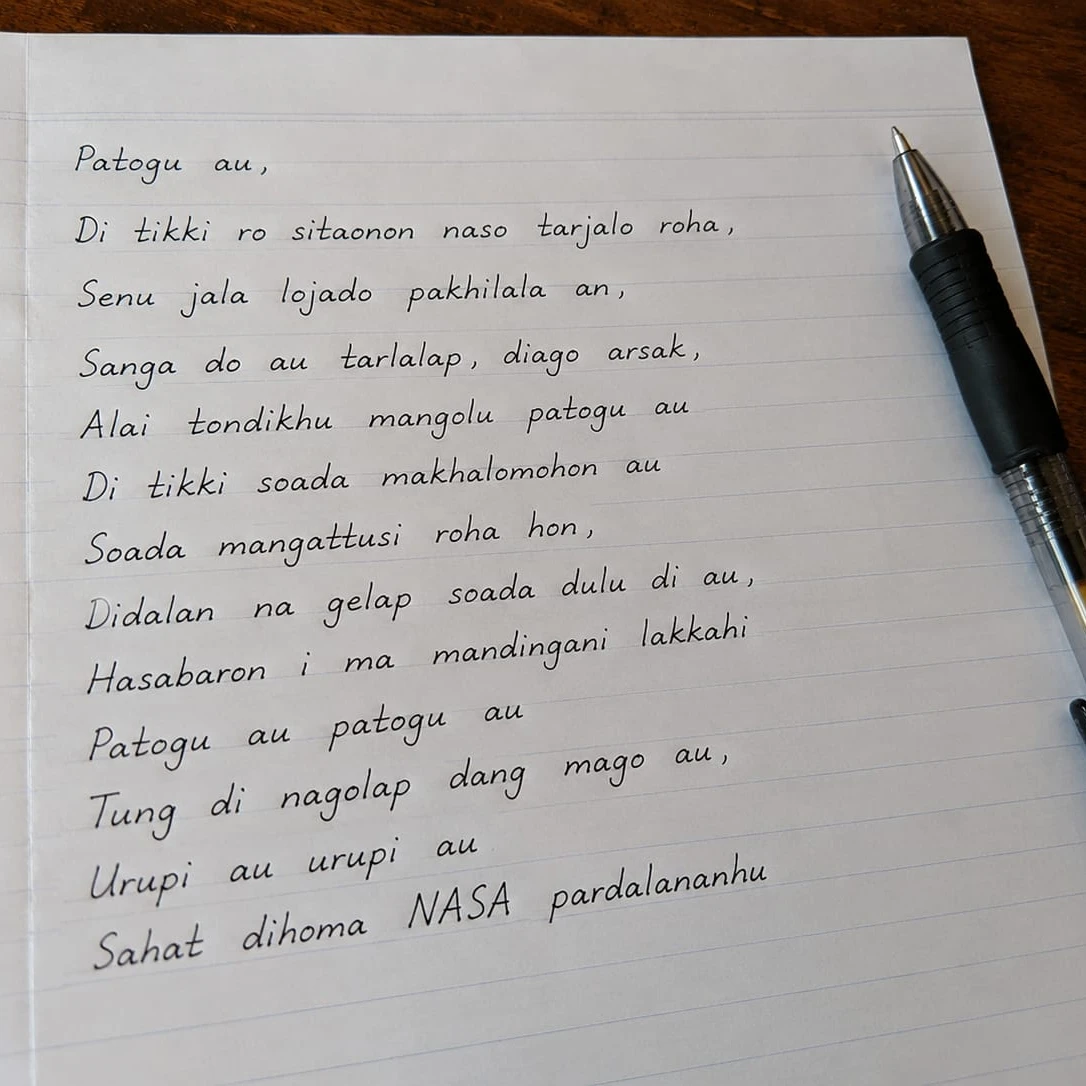 Patogu au,
Di tikki ro sitaonon naso tarjalo roha,
Senu jala lojado pakhilala an,
Sanga do au tarlalap, diago arsak,
Alai tondikhu mangolu patogu au
Di tikki soada makhalomohon au
Soada mangattusi roha hon,
Didalan na gelap soada dulu di au,
Hasabaron i ma mandingani lakkahi
Patogu au patogu au
Tung di nagolap dang mago au,
Urupi au urupi au
Sahat dihoma NASA pardalananhu